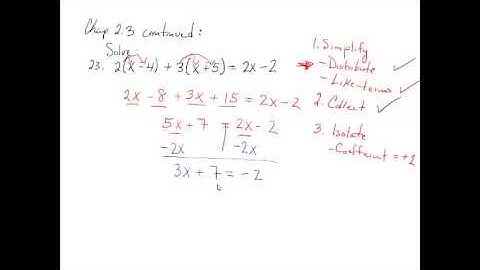 Chap 2.3 continued:
Solve:
23. 2(x-4) + 3(x+5) = 2x-2
2x - 8 + 3x + 15 = 2x-2
5x + 7 = 2x - 2
-2x -2x
3x + 7 = -2
1. Simplify
- Distribute
- Like-terms
2. Collect
3. Isolate
- Coefficient = +1